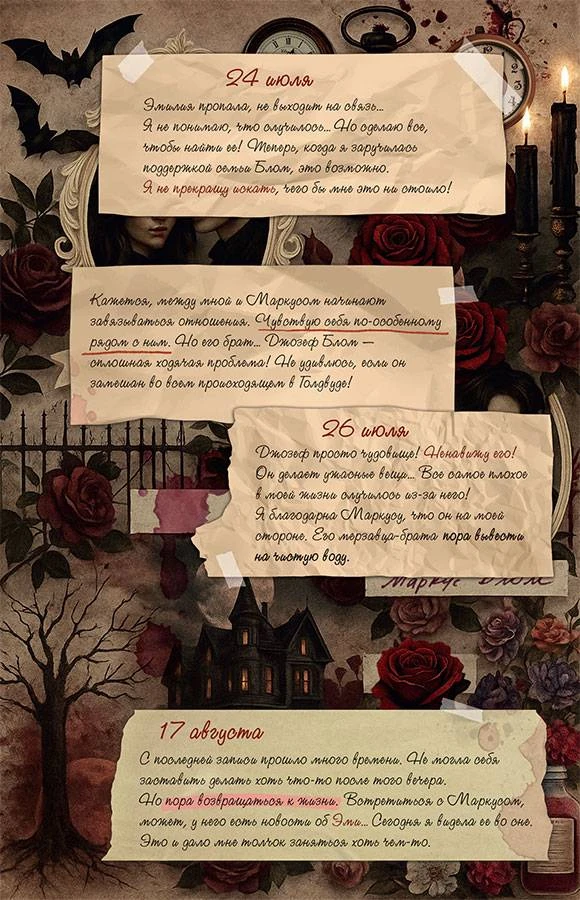 24 июля
Эмилия пропала, не выходит на связь...
Я не понимаю, что случилось... Но сделаю все,
чтобы найти ее! Теперь, когда я заручилась
поддержкой семьи Блом, это возможно.
Я не прекращу искать, чего бы мне это ни стоило!
Кажется, между мной и Маркусом начинают
завязываться отношения. Чувствую себя по-особенному
рядом с ним. Но его брат... Джозеф Блом —
сплошная ходячая проблема! Не удивлюсь, если он
замешан во всем происходящем в Голдвуде!
26 июля
Джозеф просто чудовище! Ненавижу его!
Он делает ужасные вещи... Все самое плохое
в моей жизни случилось из-за него!
Я благодарна Маркусу, что он на моей
стороне. Его мерзавца-брата пора вывести
на чистую воду.
Маркус Блом
17 августа
С последней записи прошло много времени. Не могла себя
заставить делать хоть что-то после того вечера.
Но пора возвращаться к жизни. Встретиться с Маркусом,
может, у него есть новости об Эми... Сегодня я видела ее во сне.
Это и дало мне толчок заняться хоть чем-то.